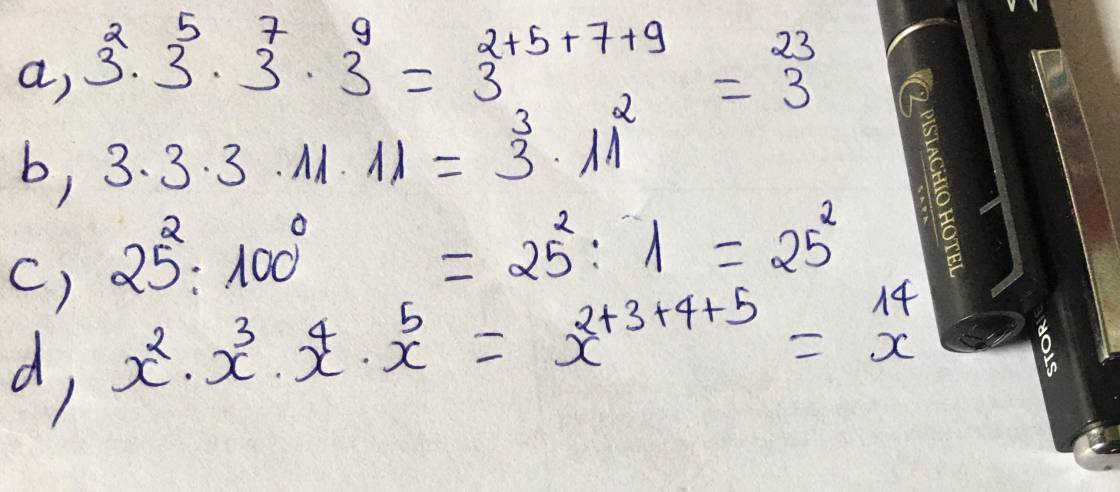 a, 3² · 3⁵ · 3⁷ · 3⁹ = 3²⁺⁵⁺⁷⁺⁹ = 3²³
b, 3 · 3 · 3 · 11 · 11 = 3³ · 11²
c, 25² : 100⁰ = 25² : 1 = 25²
d, x² · x³ · x⁴ · x⁵ = x²⁺³⁺⁴⁺⁵ = x¹⁴
PISTACHIO HOTEL
STORIE